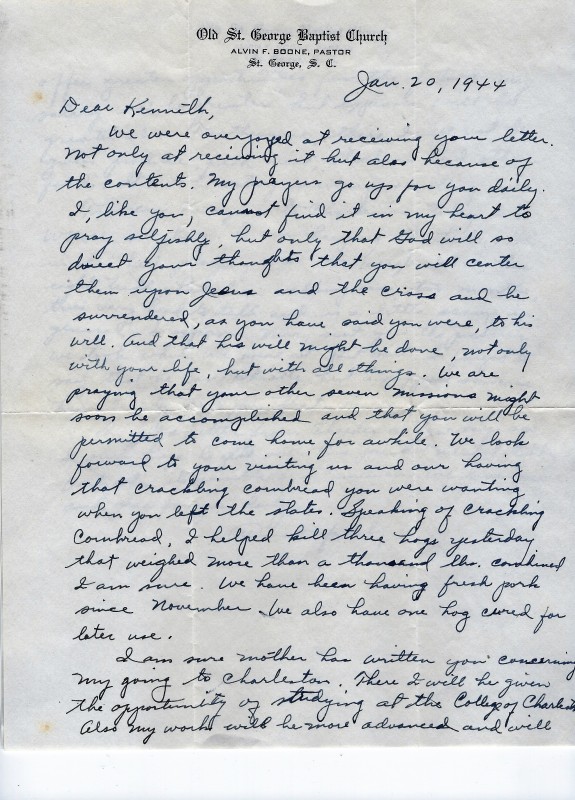 Old St. George Baptist Church
ALVIN F. BOONE, PASTOR
St. George, S. C.
Jan. 20, 1944
Dear Kenneth,
We were overjoyed at receiving your letter.
Not only at receiving it but also because of
the contents. My prayers go up for you daily.
I, like you, cannot find it in my heart to
pray selfishly, but only that God will so
direct your thoughts that you will center
them upon Jesus and the cross and be
surrendered, as you have said you were, to his
will. And that his will might be done, not only
with your life, but with all things. We are
praying that your other seven missions might
soon be accomplished and that you will be
permitted to come home for awhile. We look
forward to your visiting us and our having
that crackling cornbread you were wanting
when you left the states. Speaking of crackling
cornbread, I helped kill three hogs yesterday
that weighed more than a thousand lbs. combined
I am sure. We have been having fresh pork
since November. We also have one hog cured for
later use.
I am sure mother has written you concerning
my going to Charleston. There I will be given
the opportunity of studying at the College of Charleston
Also my work will be more advanced and will